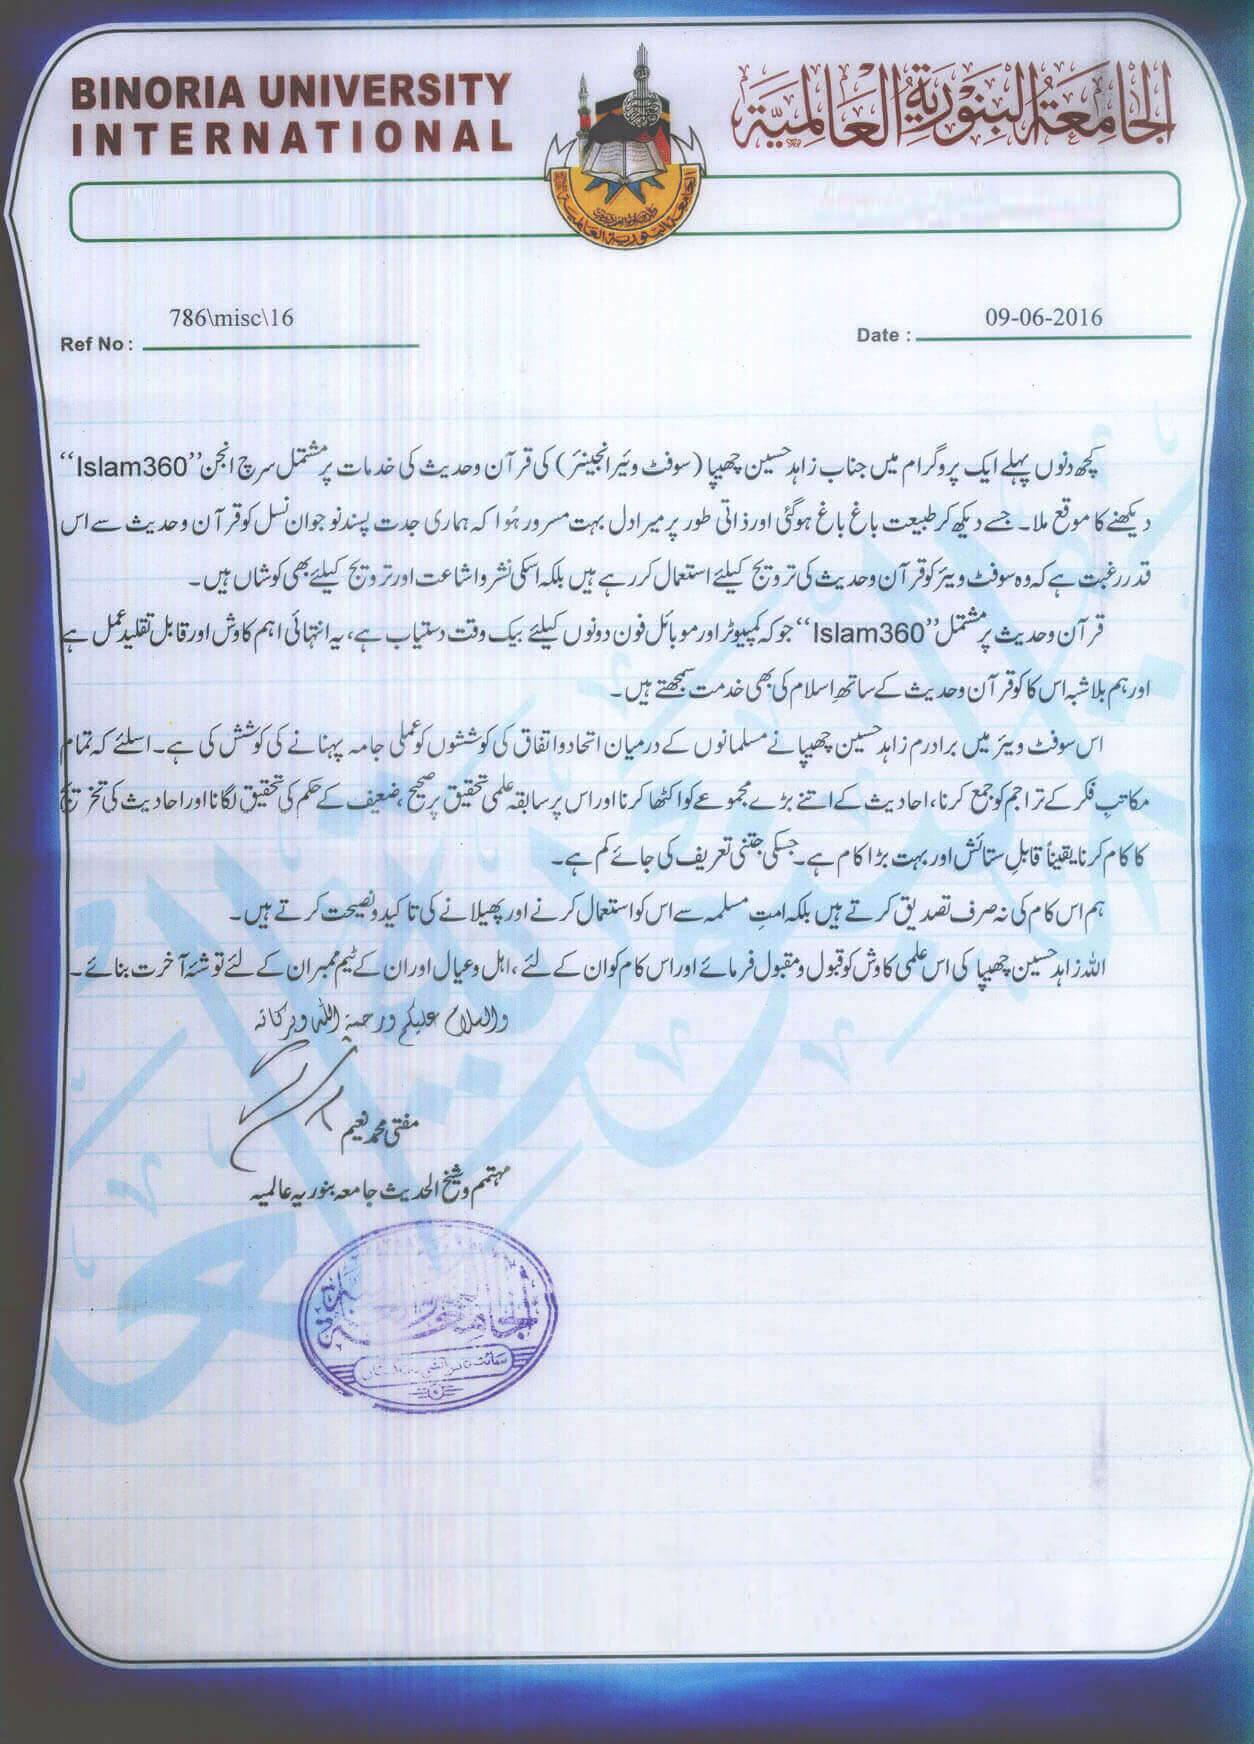 BINORIA UNIVERSITY
INTERNATIONAL
الجامعة البنورية العالمية
الجامعة البنورية العالمية
Ref No : 786\misc\16
Date : 09-06-2016
کچھ دنوں پہلے ایک پروگرام میں جناب زاہد حسین چھیپا (سوفٹ وئیر انجینئر) کی قرآن وحدیث کی خدمات پر مشتمل سرچ انجن ”Islam360“
دیکھنے کا موقع ملا۔ جسے دیکھ کر طبیعت باغ باغ ہوگئی اور ذاتی طور پر میرا دل بہت مسرور ہُوا کہ ہماری جدت پسند نوجوان نسل کو قرآن وحدیث سے اس
قدر رغبت ہے کہ وہ سوفٹ ویئر کو قرآن وحدیث کی ترویج کیلئے استعمال کررہے ہیں بلکہ اسکی نشر واشاعت اور ترویج کیلئے بھی کوشاں ہیں۔
قرآن وحدیث پر مشتمل ”Islam360“ جو کہ کمپیوٹر اور موبائل فون دونوں کیلئے بیک وقت دستیاب ہے، یہ انتہائی اہم کاوش اور قابل تقلید عمل ہے
اور ہم بلاشبہ اس کا کو قرآن وحدیث کے ساتھ اِسلام کی بھی خدمت سمجھتے ہیں۔
اس سوفٹ ویئر میں برادرم زاہد حسین چھیپا نے مسلمانوں کے درمیان اتحاد واتفاق کی کوششوں کو عملی جامہ پہنانے کی کوشش کی ہے۔ اسلئے کہ تمام
مکاتبِ فکر کے تراجم کو جمع کرنا، احادیث کے اتنے بڑے مجموعے کو اکٹھا کرنا اور اس پر سابقہ علمی تحقیق پر صحیح، ضعیف کے حکم کی تحقیق لگانا اور احادیث کی تخریج
کا کام کرنا یقیناً قابلِ ستائش اور بہت بڑا کام ہے۔ جسکی جتنی تعریف کی جائے کم ہے۔
ہم اس کام کی نہ صرف تصدیق کرتے ہیں بلکہ امتِ مسلمہ سے اس کو استعمال کرنے اور پھیلانے کی تاکید ونصیحت کرتے ہیں۔
اللہ زاہد حسین چھیپا کی اس علمی کاوش کو قبول ومقبول فرمائے اور اس کام کو ان کے لئے، اہل وعیال اور ان کے ٹیم ممبران کے لئے توشۂ آخرت بنائے۔
والسلام علیکم ورحمۃ اللہ وبرکاتہ
مفتی محمد نعیم
مہتمم وشیخ الحدیث جامعہ بنوریہ عالمیہ